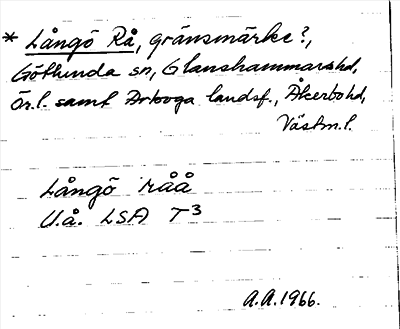 * Långö Rå, gränsmärke?,
Götlunda sn, Glanshammars hd,
Ör.l. samt Arboga landsf., Åkerbo hd,
Västm.l.
Långö råå
U.å. LSA T3
A.A. 1966.